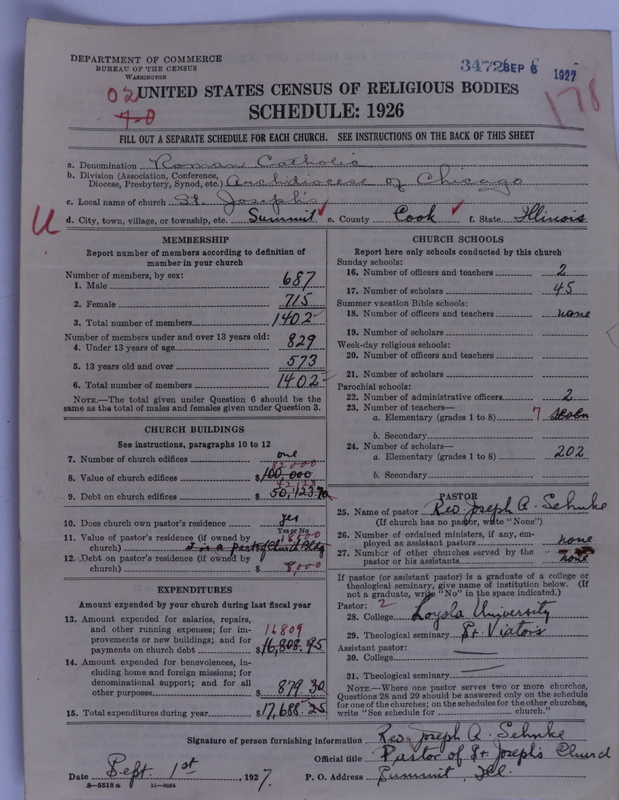 DEPARTMENT OF COMMERCE
BUREAU OF THE CENSUS
WASHINGTON
3472 SEP 6 1927
02
178
UNITED STATES CENSUS OF RELIGIOUS BODIES
SCHEDULE: 1926
FILL OUT A SEPARATE SCHEDULE FOR EACH CHURCH. SEE INSTRUCTIONS ON THE BACK OF THIS SHEET
a. Denomination Roman Catholic
b. Division (Association, Conference,
Diocese, Presbytery, Synod, etc.) Archdiocese of Chicago
c. Local name of church St. Joseph's
d. City, town, village, or township, etc. Summit e. County Cook f. State Illinois
U
MEMBERSHIP
Report number of members according to definition of
member in your church
Number of members, by sex:
1. Male 687
2. Female 715
3. Total number of members 1402
Number of members under and over 13 years old:
4. Under 13 years of age 829
5. 13 years old and over 573
6. Total number of members 1402
NOTE.—The total given under Question 6 should be
the same as the total of males and females given under Question 3.
CHURCH BUILDINGS
See instructions, paragraphs 10 to 12
7. Number of church edifices one
8. Value of church edifices $100,000
9. Debt on church edifices $50,123.70
10. Does church own pastor's residence? yes
Yes or No
11. Value of pastor's residence (if owned by 18500
church) it is a part of Church Bldg
12. Debt on pastor's residence (if owned by
church) $ 8,000
EXPENDITURES
Amount expended by your church during last fiscal year
13. Amount expended for salaries, repairs,
and other running expenses; for im- 16809
provements or new buildings; and for
payments on church debt $16,808.95
14. Amount expended for benevolences, in-
cluding home and foreign missions; for
denominational support; and for all
other purposes 879.30
15. Total expenditures during year $17,688.25
CHURCH SCHOOLS
Report here only schools conducted by this church
Sunday schools:
16. Number of officers and teachers 2
17. Number of scholars 45
Summer vacation Bible schools:
18. Number of officers and teachers none
19. Number of scholars
Week-day religious schools:
20. Number of officers and teachers
21. Number of scholars
Parochial schools:
22. Number of administrative officers 2
23. Number of teachers—
a. Elementary (grades 1 to 8) 7 seven
b. Secondary
24. Number of scholars—
a. Elementary (grades 1 to 8) 202
b. Secondary
PASTOR
25. Name of pastor Rev. Joseph A. Sehnke
(If church has no pastor, write "None")
26. Number of ordained ministers, if any, em-
ployed as assistant pastors none
27. Number of other churches served by the
pastor or his assistants none
If pastor (or assistant pastor) is a graduate of a college or
theological seminary, give name of institution below. (If
not a graduate, write "No" in the space indicated.)
Pastor: 2
28. College Loyola University
29. Theological seminary St. Viators
Assistant pastor:
30. College
31. Theological seminary
NOTE.—Where one pastor serves two or more churches,
Questions 28 and 29 should be answered only on the schedule
for one of the churches; on the schedules for the other churches,
write "See schedule for church."
Signature of person furnishing information Rev. Joseph A. Sehnke
Official title Pastor of St. Joseph's Church
Date Sept. 1st, 1927. P. O. Address Summit, Ill.
8—5519 a 11—9024